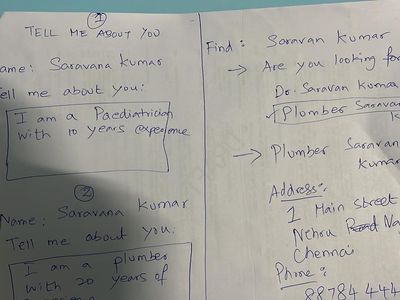 1
TELL ME ABOUT YOU
ame: Saravana kumar
ell me about you:
I am a Paediatrician
with 10 years experience
2
Name: Saravana Kumar
Tell me about you:
I am a plumber
with 20 years of
Find: Saravan Kumar
→ Are you looking for
Dr. Saravan Kumar
✓ Plumber Saravan
k
→ Plumber Saravan
kumar
Address:
1 Main Street
Nehru Road Na
Chennai
Phone:
88784 444